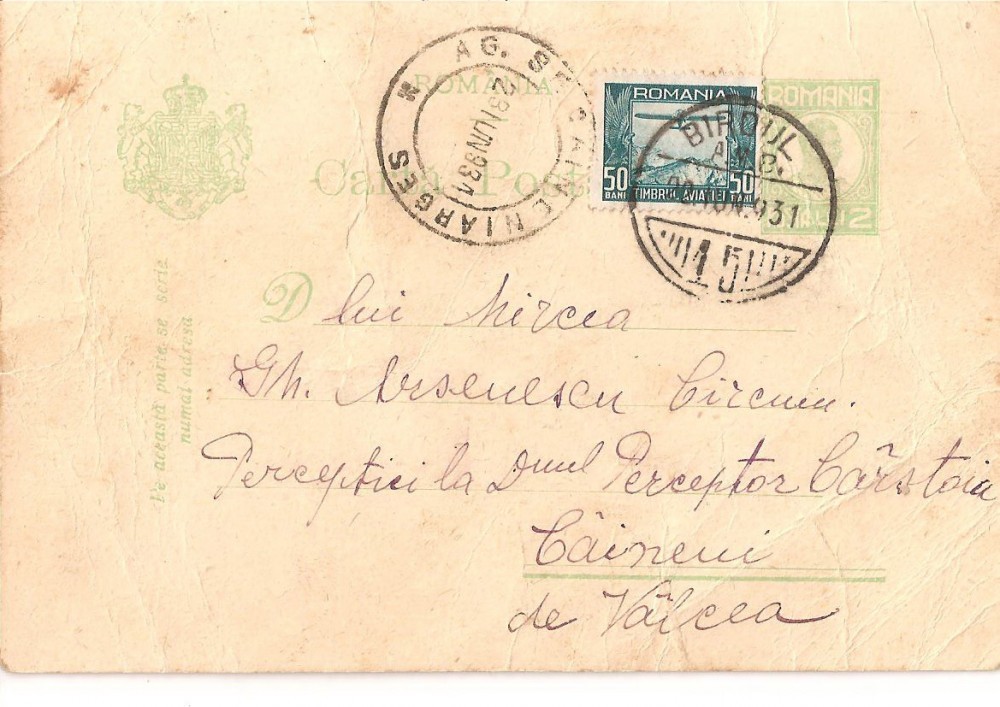 ROMANIA
Carta Post
AG. SP. CAINENI ARGES
23 IUN 931
ROMANIA
50 BANI TIMBRUL AVIATIEI 50 BANI
BIROUL
931
15
ROMANIA
LEI 2
Pe această parte se scrie
numai adresa
D lui Mircea
Gh. Arsenescu Circum.
Percepției la Dnul Perceptor Cârstoiu
Câineni
de Vâlcea